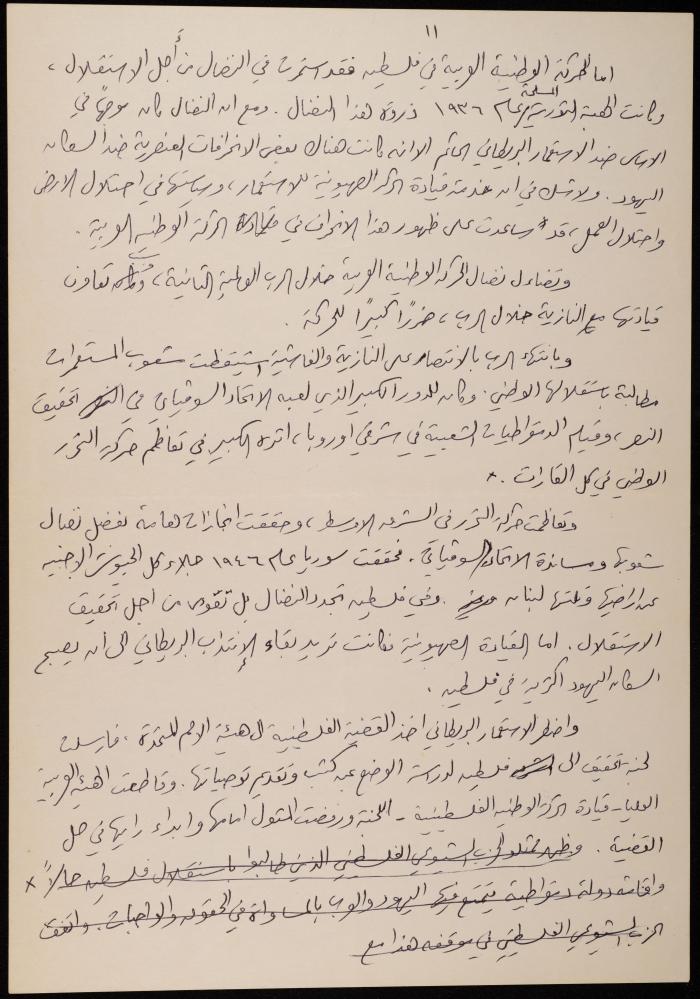 ١١
اما الحركة الوطنية العربية في فلسطين فقد استمرت في النضال من أجل الاستقلال ،
وكانت الهبة الثورية المسلحة عام ١٩٣٦ ذروة هذا النضال . ومع ان النضال كان موجهاً في
الاساس ضد الاستعمار البريطاني الحاكم الا انه كانت هناك بعض الانحرافات العنصرية ضد السكان
اليهود . ولا شك في ان خدمة قيادة الحركة الصهيونية للاستعمار ، وسياستها في احتلال الارض
واحتلال العمل ، قد ساعدت على ظهور هذا الانحراف في قيادة الحركة الوطنية العربية .
وتضاءل نضال الحركة الوطنية العربية خلال الحرب العالمية الثانية ، تعاون
قيادتها مع النازية خلال الحرب ، ضرراً كبيراً للحركة .
وبانتهاء الحرب بالانتصار على النازية والفاشية استيقظت شعوب المستعمرات
مطالبة باستقلالها الوطني . وكان للدور الكبير الذي لعبه الاتحاد السوفياتي في تحقيق
النصر ، وقيام الدمقراطيات الشعبية في شرقي اوروبا ، اثره الكبير في تعاظم حركة التحرر
الوطني في كل القارات . ×
وتعاظمت حركة التحرر في الشرق الاوسط ، وحققت انجازات هامة بفضل نضال
شعوبها ومساندة الاتحاد السوفياتي . فحققت سوريا عام ١٩٤٦ جلاء كل الجيوش الاجنبية
عن اراضيها وتلتها لبنان . وفي فلسطين تجدد النضال بل تقوى من اجل تحقيق
الاستقلال . اما القيادة الصهيونية فكانت تريد بقاء الإنتداب البريطاني الى أن يصبح
السكان اليهود اكثرية في فلسطين .
واضطر الاستعمار البريطاني اخذ القضية الفلسطينية الى هيئة الامم المتحدة ، فارسلت
لجنة تحقيق الى فلسطين لدراسة الوضع عن كثب وتقديم توصياتها . وقاطعت الهيئة العربية
العليا - قيادة الحركة الوطنية الفلسطينية - اللجنة ورفضت المثول امامها وابداء رايها في حل
القضية . وظهر ممثلو الحزب الشيوعي الفلسطيني الذين طالبوا باستقلال فلسطين حالاً ×
واقامة دولة دمقراطية يتمتع فيها اليهود والعرب بالمساواة في الحقوق والواجبات . واتفق
الحزب الشيوعي الفلسطيني في موقفه هذا مع